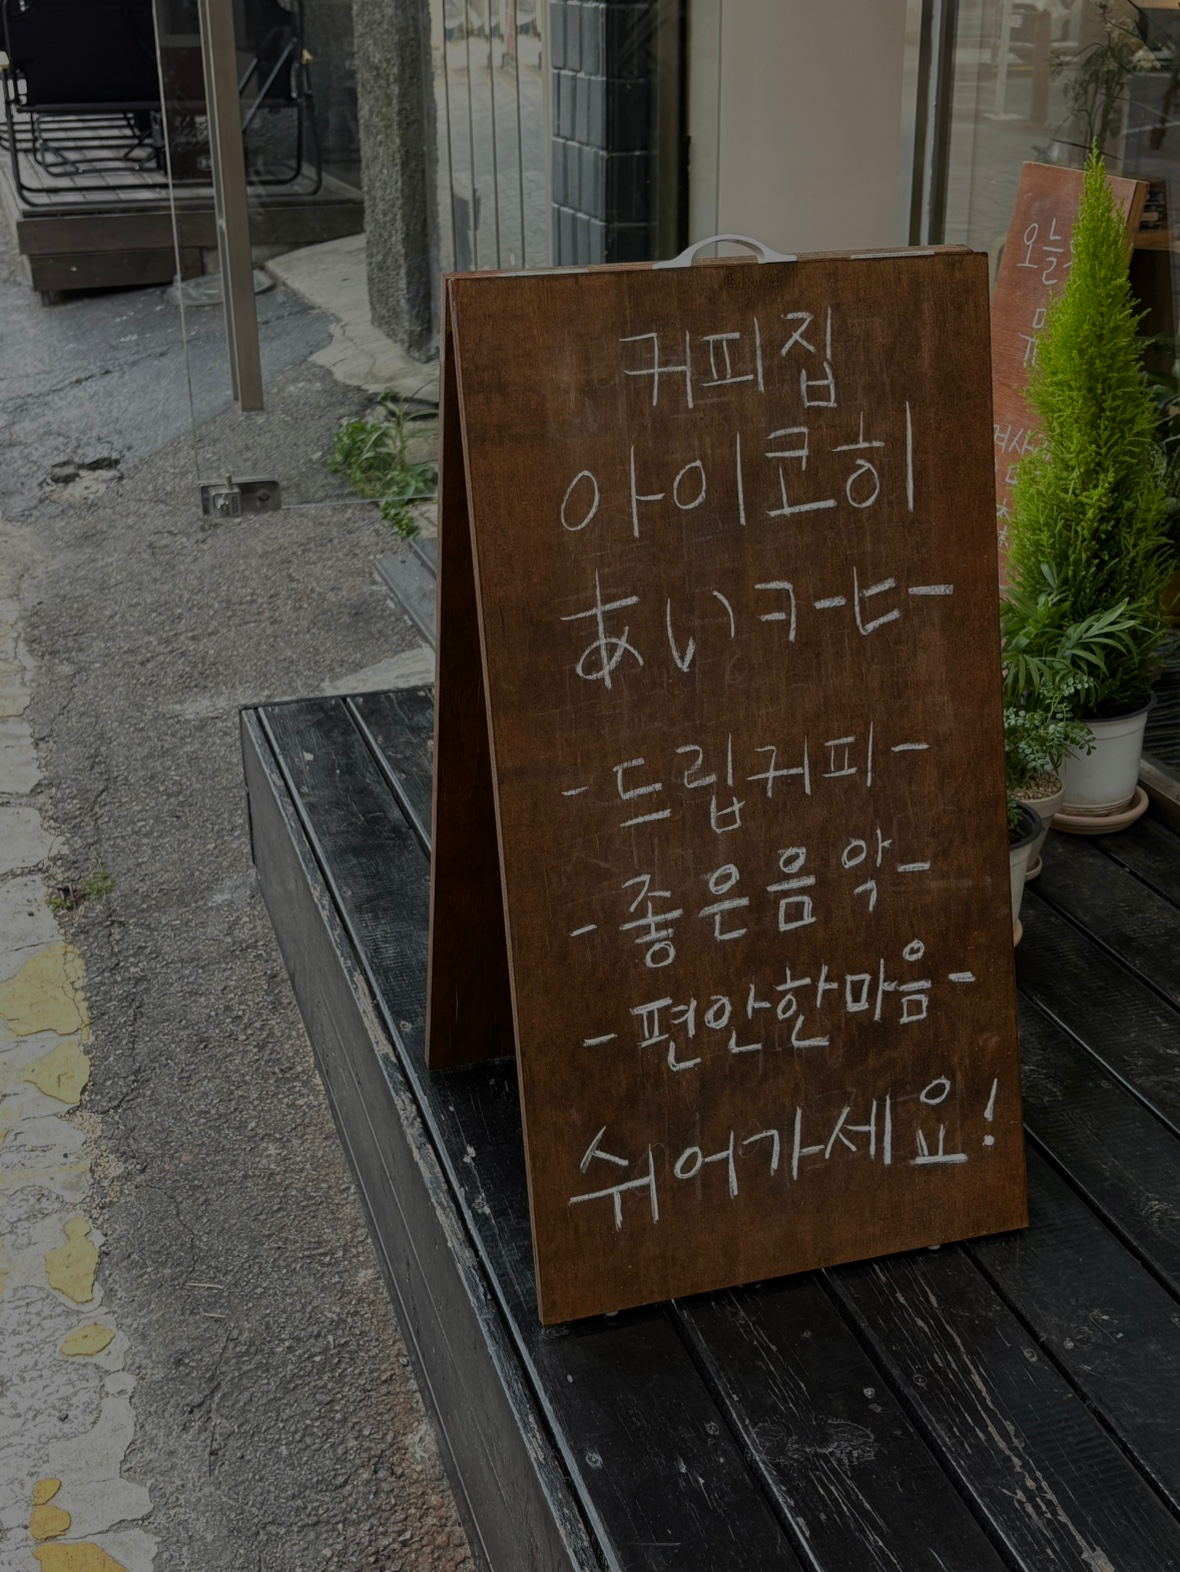 커피집
아이코히
あいコーヒー
-드립커피-
-좋은음악-
-편안한마음-
쉬어가세요!
오늘